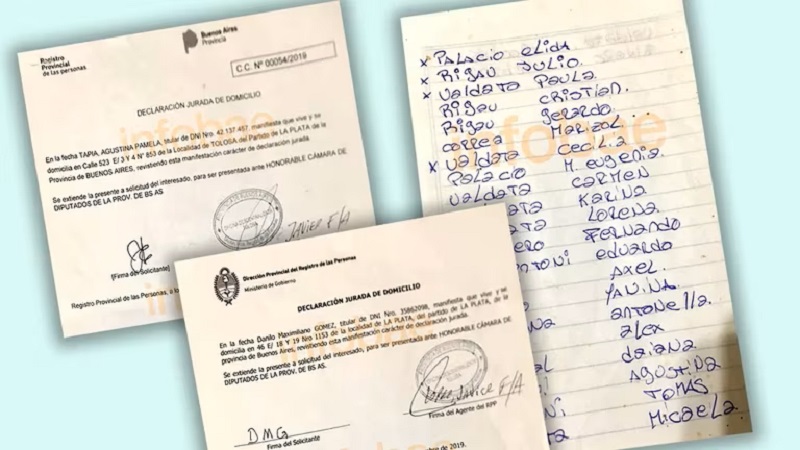 Registro
Provincial
de las personas
Buenos Aires
Provincia
C.C. Nº 00054/2019
DECLARACIÓN JURADA DE DOMICILIO
En la fecha TAPIA, AGUSTINA PAMELA, titular de DNI Nro. 42.137.457, manifiesta que vive y su
domicilia en Calle 523 E/ 3 Y 4 N° 853 de la Localidad de TOLOSA, del Partido de LA PLATA de la
Provincia de BUENOS AIRES, revistiendo esta manifestación carácter de declaración jurada.
Se extiende la presente a solicitud del interesado, para ser presentada ante HONORABLE CÁMARA DE
DIPUTADOS DE LA PROV. DE BS AS.
(Firma del Solicitante)
Javier F/A
Registro Provincial de las Personas, a
infobae
Dirección Provincial del Registro de las Personas
Ministerio de Gobierno
DECLARACIÓN JURADA DE DOMICILIO
En la fecha Danilo Maximiliano GOMEZ, titular de DNI Nro. 35862098, manifiesta que vive y se
domicilia en 46 E/ 18 Y 19 Nro 1153 de la localidad de LA PLATA, del partido de LA PLATA, de la
provincia de Buenos Aires, revistiendo esta manifestación carácter de declaración jurada.
Se extiende la presente a solicitud del interesado, para ser presentada ante HONORABLE CÁMARA DE
DIPUTADOS DE LA PROV. DE BS AS.
DMG
Firma del Solicitante
Javier F/A
Firma del Agente del RPP
bre de 2019.
x PALACIO Elida
x Rigau JULIO.
x Valdata PAULA
Rigau CRISTIAN.
Rigau Gerardo.
Correa MARISOL.
x Valdata Cecilia
PALACIO M. eugenia.
VALDATA CARMEN
ATA KARINA
ATA LORENA
ero FERNANDO
ANTONI eduardo
AXEL.
YANINA
ANTONELLA.
alex
daiana
AGUSTINA
NI TOMAS
TA MICAELA
infobae